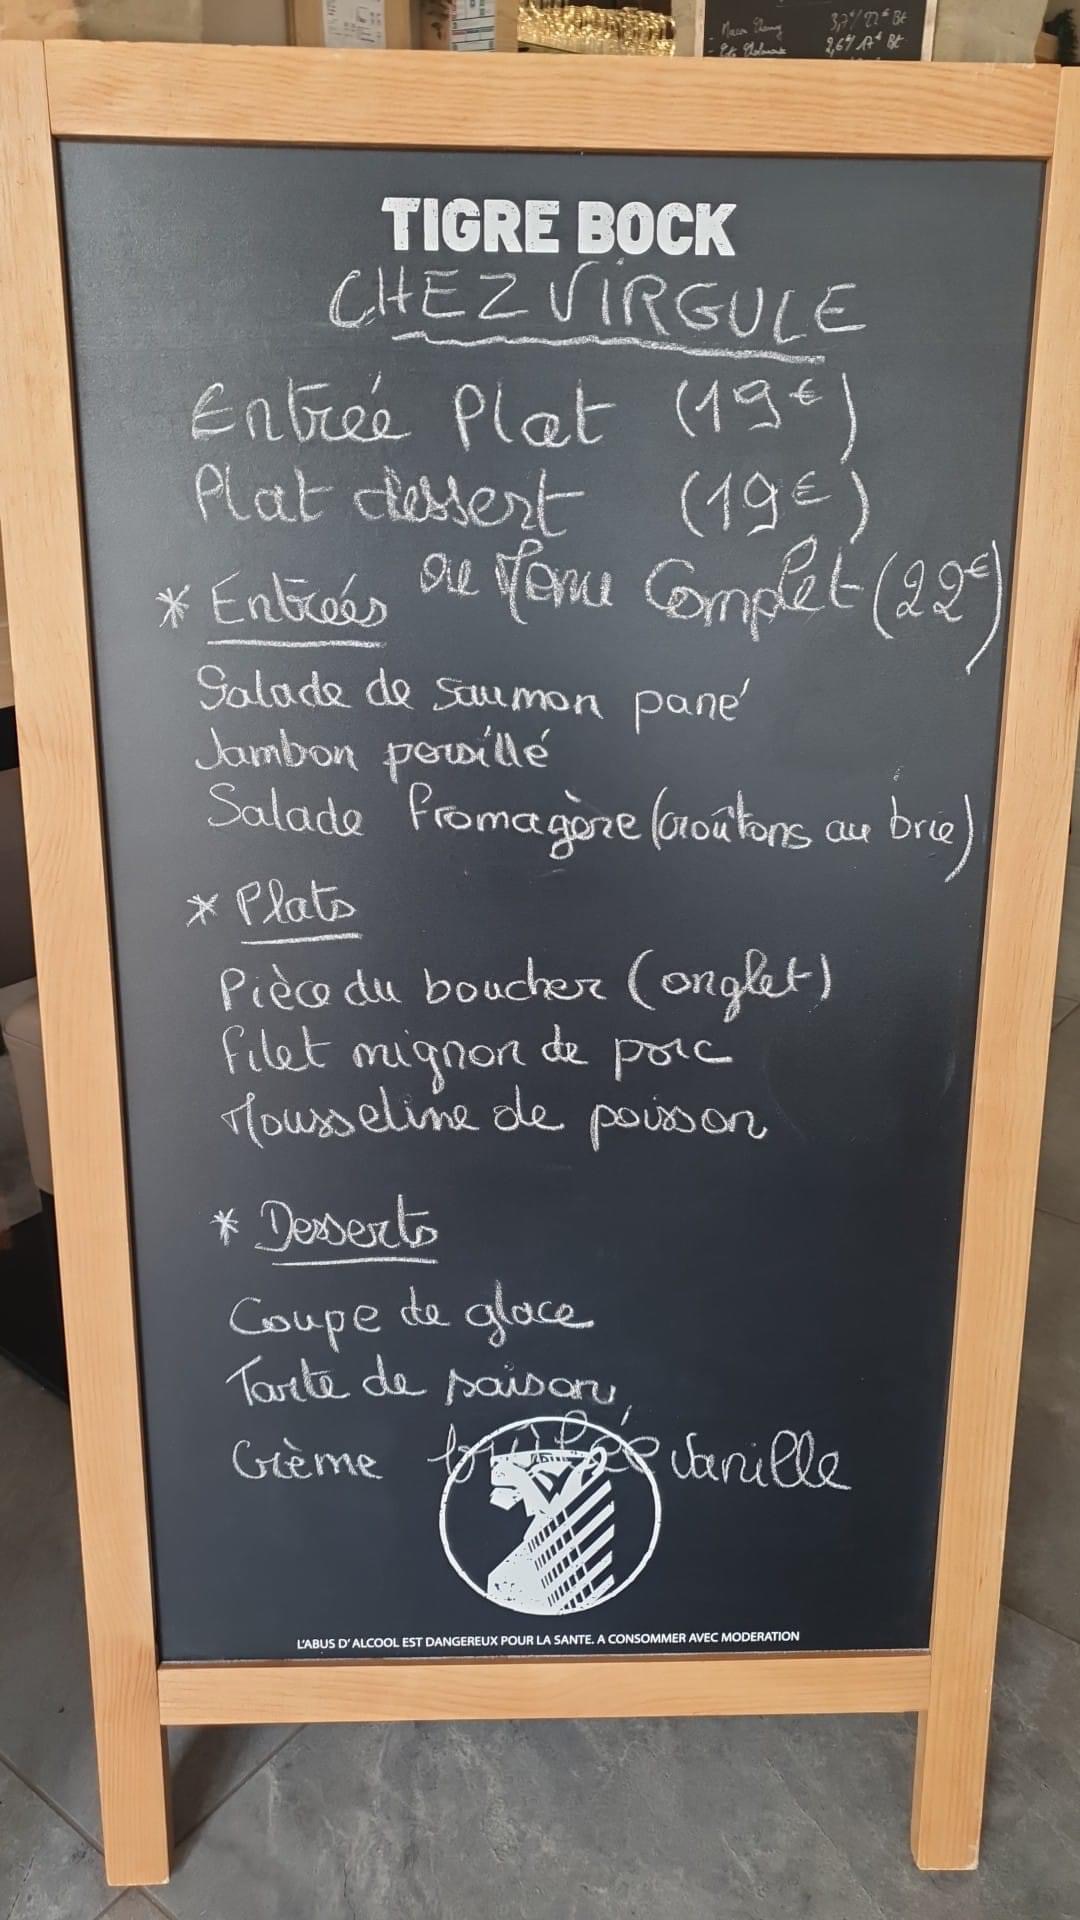 3,7€/22€ Bt
2,6€/17€ Bt
TIGRE BOCK
CHEZ VIRGULE
Entrée Plat (19€)
Plat dessert (19€)
ou Menu Complet (22€)
* Entrées
Salade de saumon pané
Jambon persillé
Salade fromagère (croûtons au brie)
* Plats
Pièce du boucher (onglet)
Filet mignon de porc
Mousseline de poisson
* Desserts
Coupe de glace
Tarte de saison
Crème brûlée vanille
L'ABUS D'ALCOOL EST DANGEREUX POUR LA SANTE. A CONSOMMER AVEC MODERATION